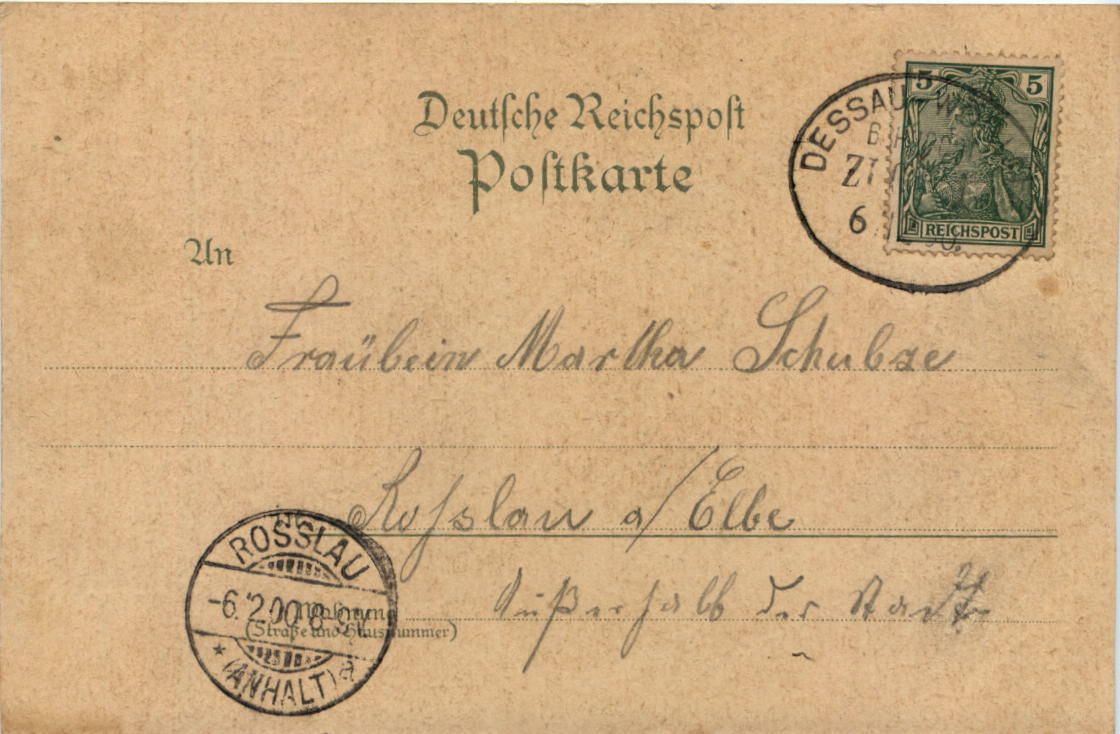 Deutsche Reichspost
Postkarte
An
5 5
REICHSPOST
DESSAU
6
Fräulein Martha Schulze
Rosslau a/Elbe
Außerhalb der Stadt
Wohnung
(Straße und Hausnummer)
ROSSLAU
-6.2.00.8-9V.
* (ANHALT) a